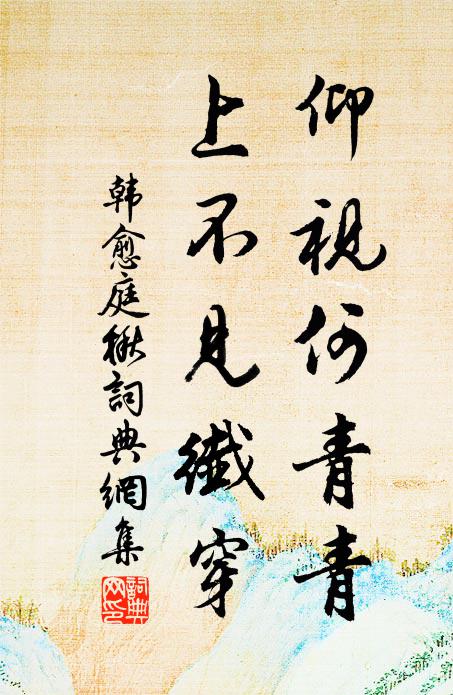 仰視何青青
上不見纖穿
韩愈庭楸詞典網集
詞典